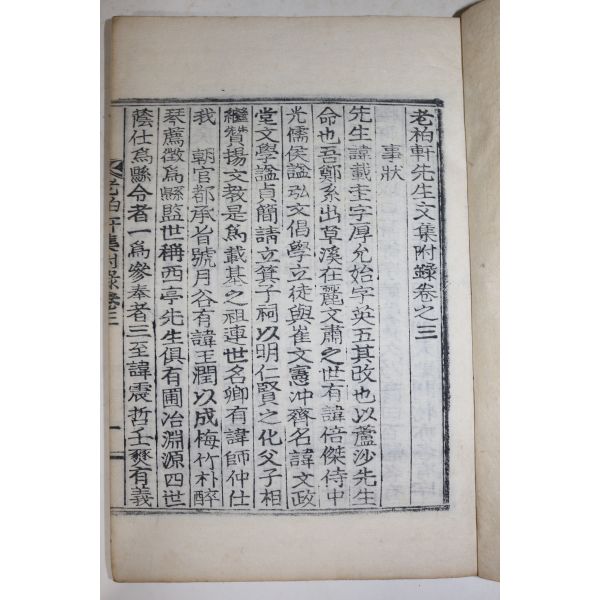 老柏軒先生文集附錄卷之三
事狀
先生諱載圭字厚允始字英五其改也以蘆沙先生
命也吾鄭系出草溪在麗文肅之世有諱倍傑侍中
光儒侯謚弘文倡學立徒與崔文憲沖齊名諱文政
堂文學謚貞簡請立箕子祠以明仁賢之化父子相
繼贊揚文教是爲載基之祖連世名卿有諱師仲仕
我 朝官都承旨號月谷有諱玉潤以成梅竹朴醉
琴薦徵爲縣監世稱西亭先生俱有圃冶淵源四世
蔭仕爲縣令者一爲參奉者三至諱震哲壬燹有義
老柏軒集附錄卷三
一